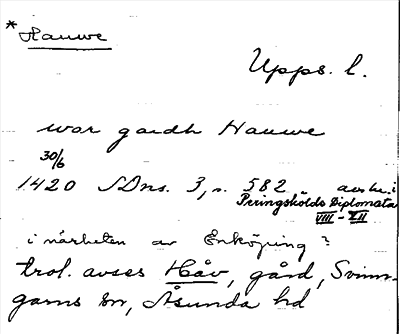 *Hauwe
Upps. l.
war gardh Hauwe
30/6
1420 SDns. 3, s. 582 avskr. i
Peringskölds Diplomata
VIII - XII
i närheten av Enköping?
trol. avses Håv, gård, Svinn-
garns sn, Åsunda hd